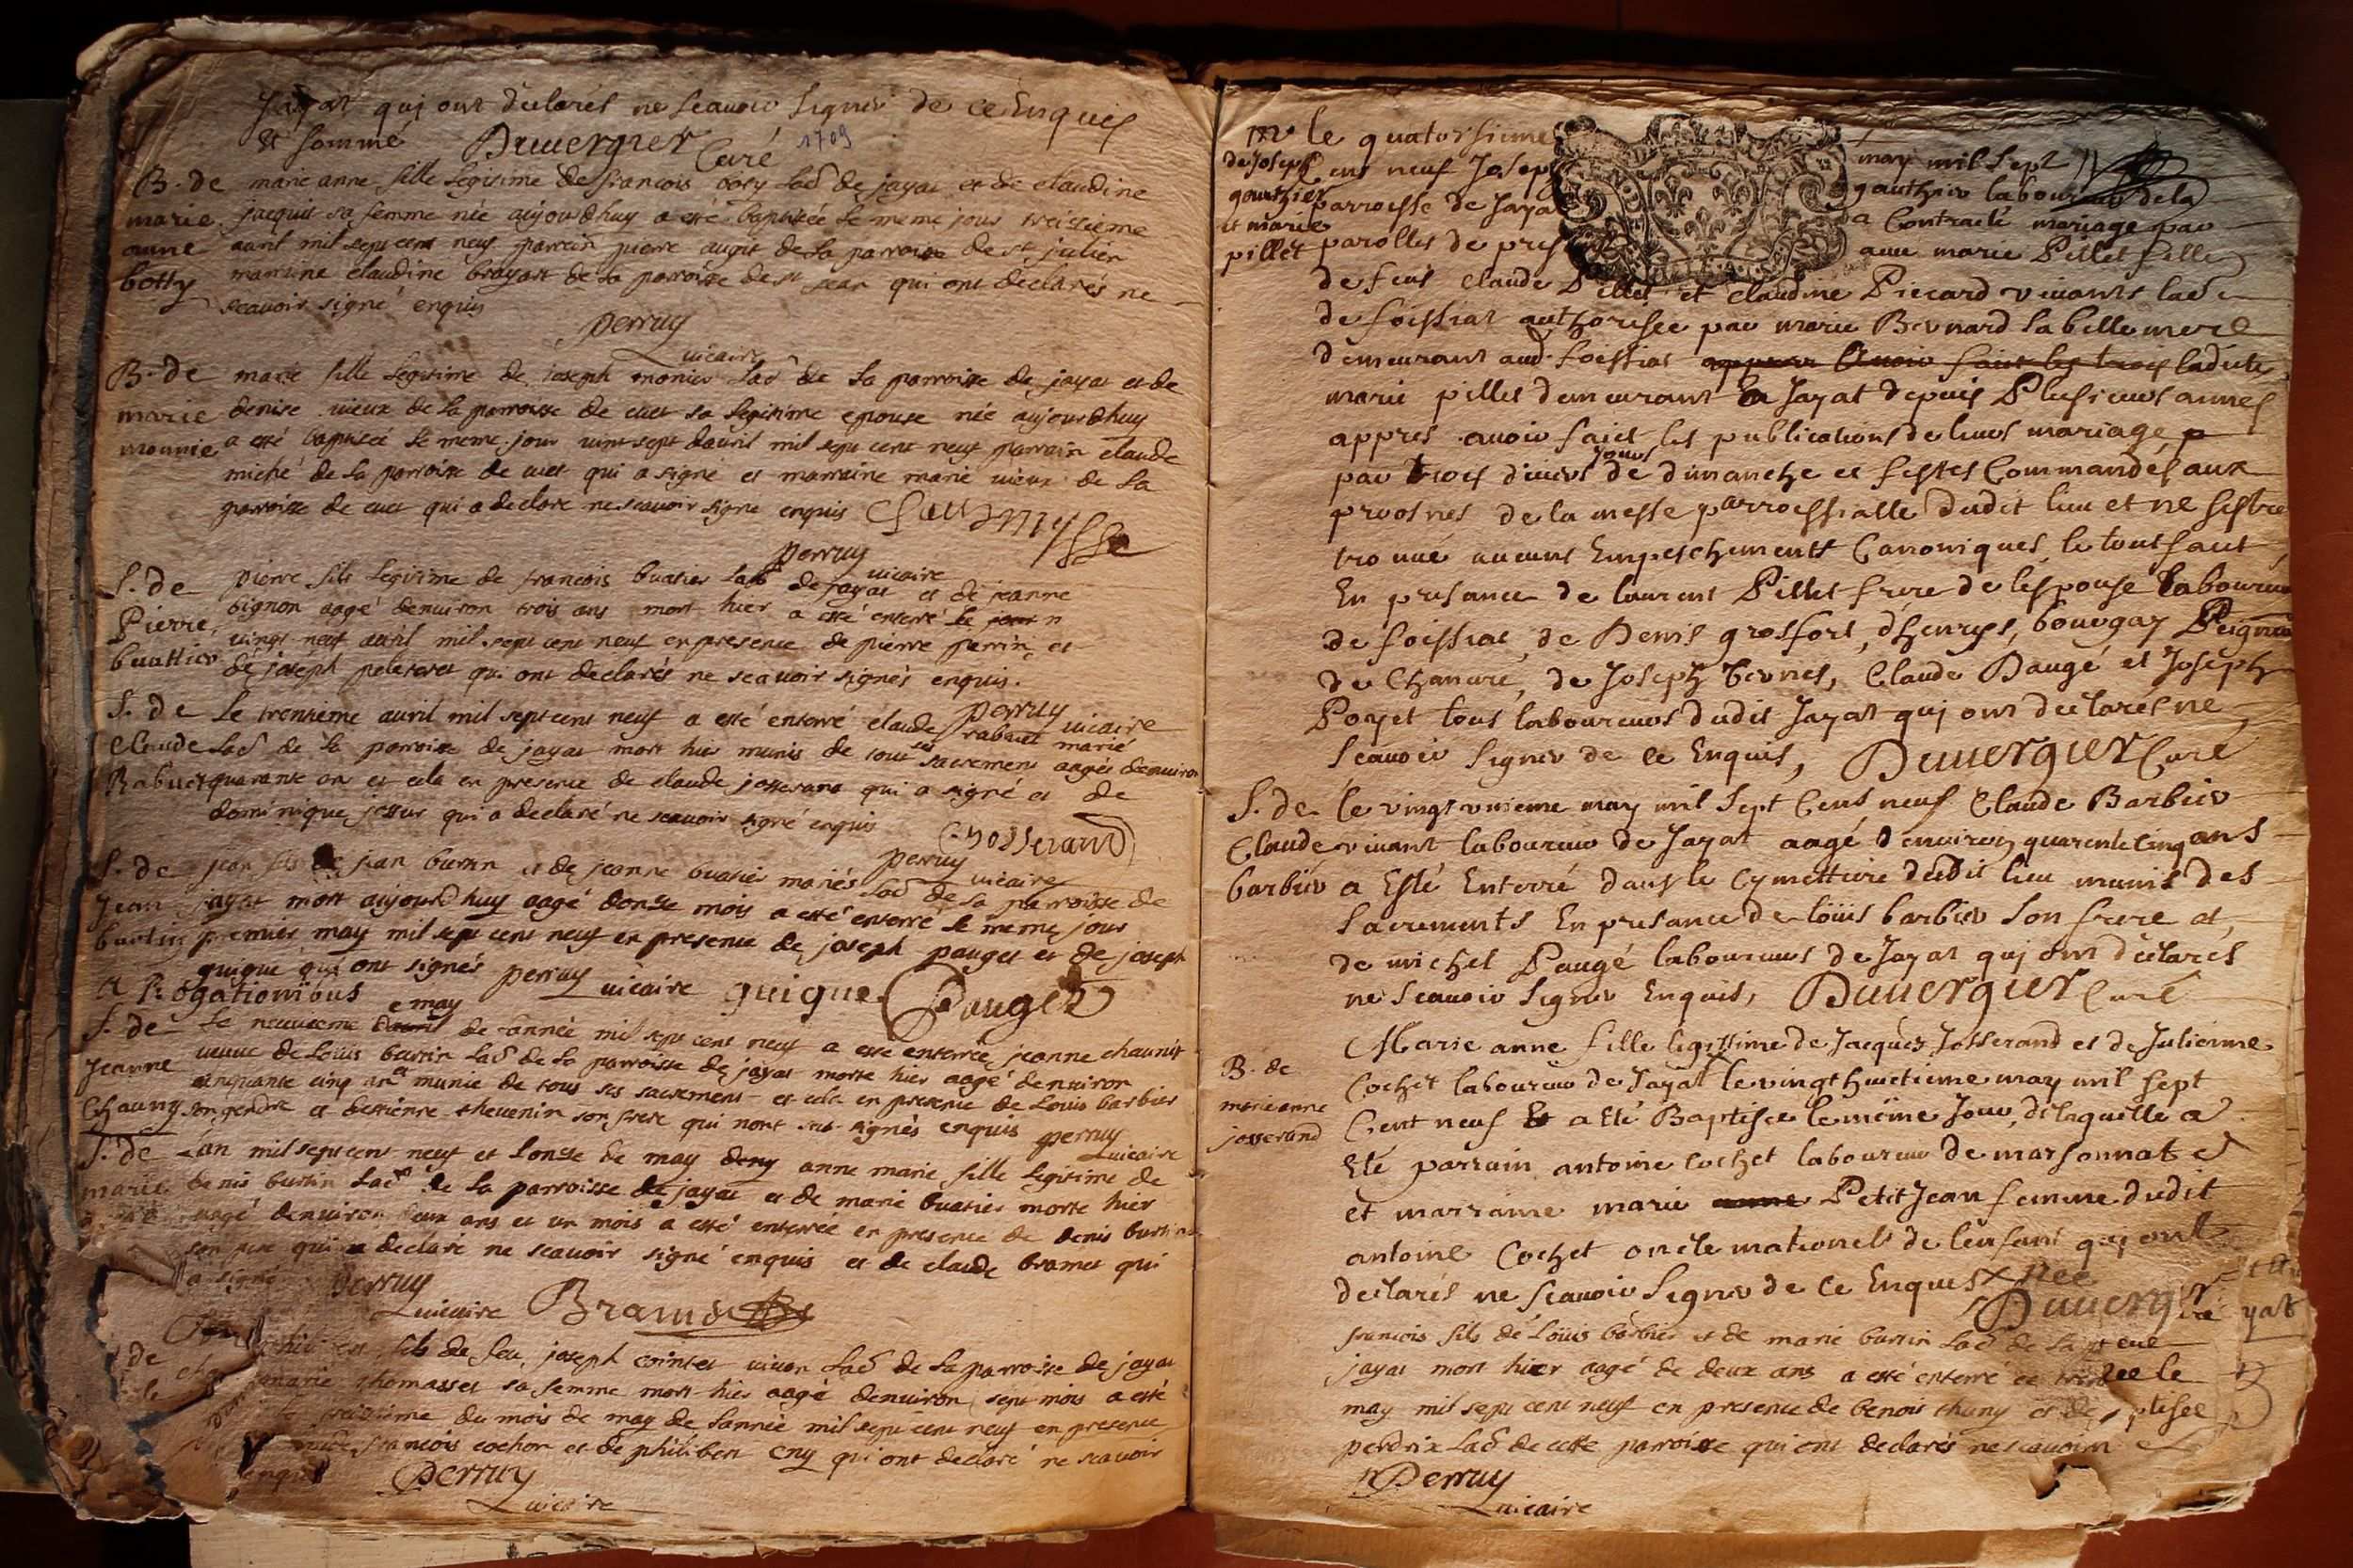 Jayat quj ont declarés ne scauoir signer de ce Enquis
et sommé Duuergier Curé 1709
B. de marie anne fille legitime de francois boty lad de jayat et de claudine
marie jacquet sa femme née aujourdhuy a esté baptisée le meme jour treisieme
anne auril mil sept cent neuf parrein pierre de la parroisse de st julien
botty marraine claudine brayart de la paroisse de st jean qui ont declarés ne
scauoir signé enquis
perruy
uicaire
B. de marie fille legitime de joseph monier lad de la parroisse de jayat et de
marie denise uieux de la parroisse de cuet sa legitime epouse née aujourdhuy
monnie a esté baptisée le meme jour uint sept dauril mil sept cent neuf parrain claude
miché de la paroisse de cuet qui a signé et marraine marie uieux de la
parroisse de cuet qui a declare ne scauoir signe enquis
perruy
uicaire
S. de pierre fils legitime de francois buatier lad de jayat et de jeanne
Pierre bignon aagé denuiron trois ans mort hier a esté enterré le jour
buattier uingt neuf auril mil sept cent neuf en presence de pierre perrin et
de joseph peleteret qui ont declarés ne scauoir signés enquis.
perruy uicaire
S. de Le trentieme auril mil sept cent neuf a esté enterré claude rabuet marié
Claude lad de la parroisse de jayat mort hier munis de tout ses sacrement aagés denuiron
Rabuet quarante ans et cela en presence de claude josserand qui a signé et de
dominique qui a declaré ne scauoir signé enquis
C Josserand
perruy uicaire
S. de jean fils de jean burtin et de jeanne buatier mariés lad de la parroisse de
Jean jayat mort aujourdhuy aagé donse mois a esté enterré le meme jour
burtin premier may mil sept cent neuf en presence de joseph pauget et de joseph
guigue qui ont signés perruy uicaire guigue Pauget
a Rogationibus
S. de Le neuuieme may de lannée mil sept cent neuf a esté enterrée jeanne chaunit
Jeanne ueuue de Louis burtin lad de la parroisse de jayat morte hier aagé denuiron
cinquante cinq ans munie de tous ses sacrement et cela en presence de Louis barbier
Chauny son gendre et destienne theuenin son frere qui nont signés enquis perruy
uicaire
S. de Lan mil sept cent neuf et lonse de may anne marie fille legitime de
marie denis burtin lad de la parroisse de jayat et de marie buatier morte hier
aagé denuiron deux ans et un mois a esté enterrée en presence de denis burtin
son pere qui a declaré ne scauoir signé enquis et de claude bramet qui
a signé perruy
uicaire Bramet
de fils de feu joseph cointet uiuan lad de la parroise de jayat
marie thomasset sa femme mort hier aagé denuiron sept mois a esté
le treisieme du mois de may de lannée mil sept cent neuf en presence
francois cochon et de philiben eny qui ont declaré ne scauoir
enquis perruy
uicaire
M le quatorsieme may mil sept
de Joseph cens neuf Joseph gauthier laboureur de la
gauthier parroisse de Jayat a Contracté mariage par
et marie parolles de pres auec marie Pillet fille
pillet de feus Claude Pillet et Claudine Piccard viuants lad
de foissiat authorisee par marie Bernard sa belle mere
demeurant aud. foissiat ladite
marie pillet demeurant a Jayat depuis Plusieurs annes
appres auoir faict les publications de leurs mariage
par trois diuers jours de dimanche et festes Commandés aux
prosnes de la messe parroissialle dudit lieu et ne sestre
trouué aucuns Empeschements Canoniques, le tout faict
En presance de laurent Pillet frere de lespouse laboureur
de foissiat, de Denis grosfort, dhenrys bouugay Peigneur
de Chanure, de Joseph Vernes, Claude Paugé et Joseph
Poyet tous laboureurs dudit Jayat quj ont declarés ne
scauoir signer de ce Enquis, Duuergier Curé
S. de le vingt vnieme may mil sept Cens neuf Claude Barbier
Claude viuant laboureur de Jayat aagé denuiron quarente cinq ans
barbier a Esté Enterré dans le Cymettiere dudit lieu munit des
sacrements En presance de loüis barbier son frere et
de michel Paugé laboureurs de Jayat quj ont declarés
ne scauoir signer Enquis, Duuergier Curé
Marie anne fille legitime de Jacques Josserand et de Julienne
B. de Cochet laboureur de Jayat le vingt huictieme may mil sept
marie anne Cent neuf a Eté Baptisee le méme Jour, de laquelle a
josserand Eté parrain antoine Cochet laboureur de marsonnat et
et marraine marie Petit Jean femme dudit
antoine Cochet oncle maternel de lenfant quj ont
declarés ne scauoir signer de ce Enques née
Duuergier
francois fils de Loüis barbier et de marie burtin lad de
jayat mort hier aagé de deux ans a esté enterré le
may mil sept cent neuf en presence de benoit chuny et de
perdrix lad de cette parroisse qui ont declarés ne scauoir
Perruy
uicaire